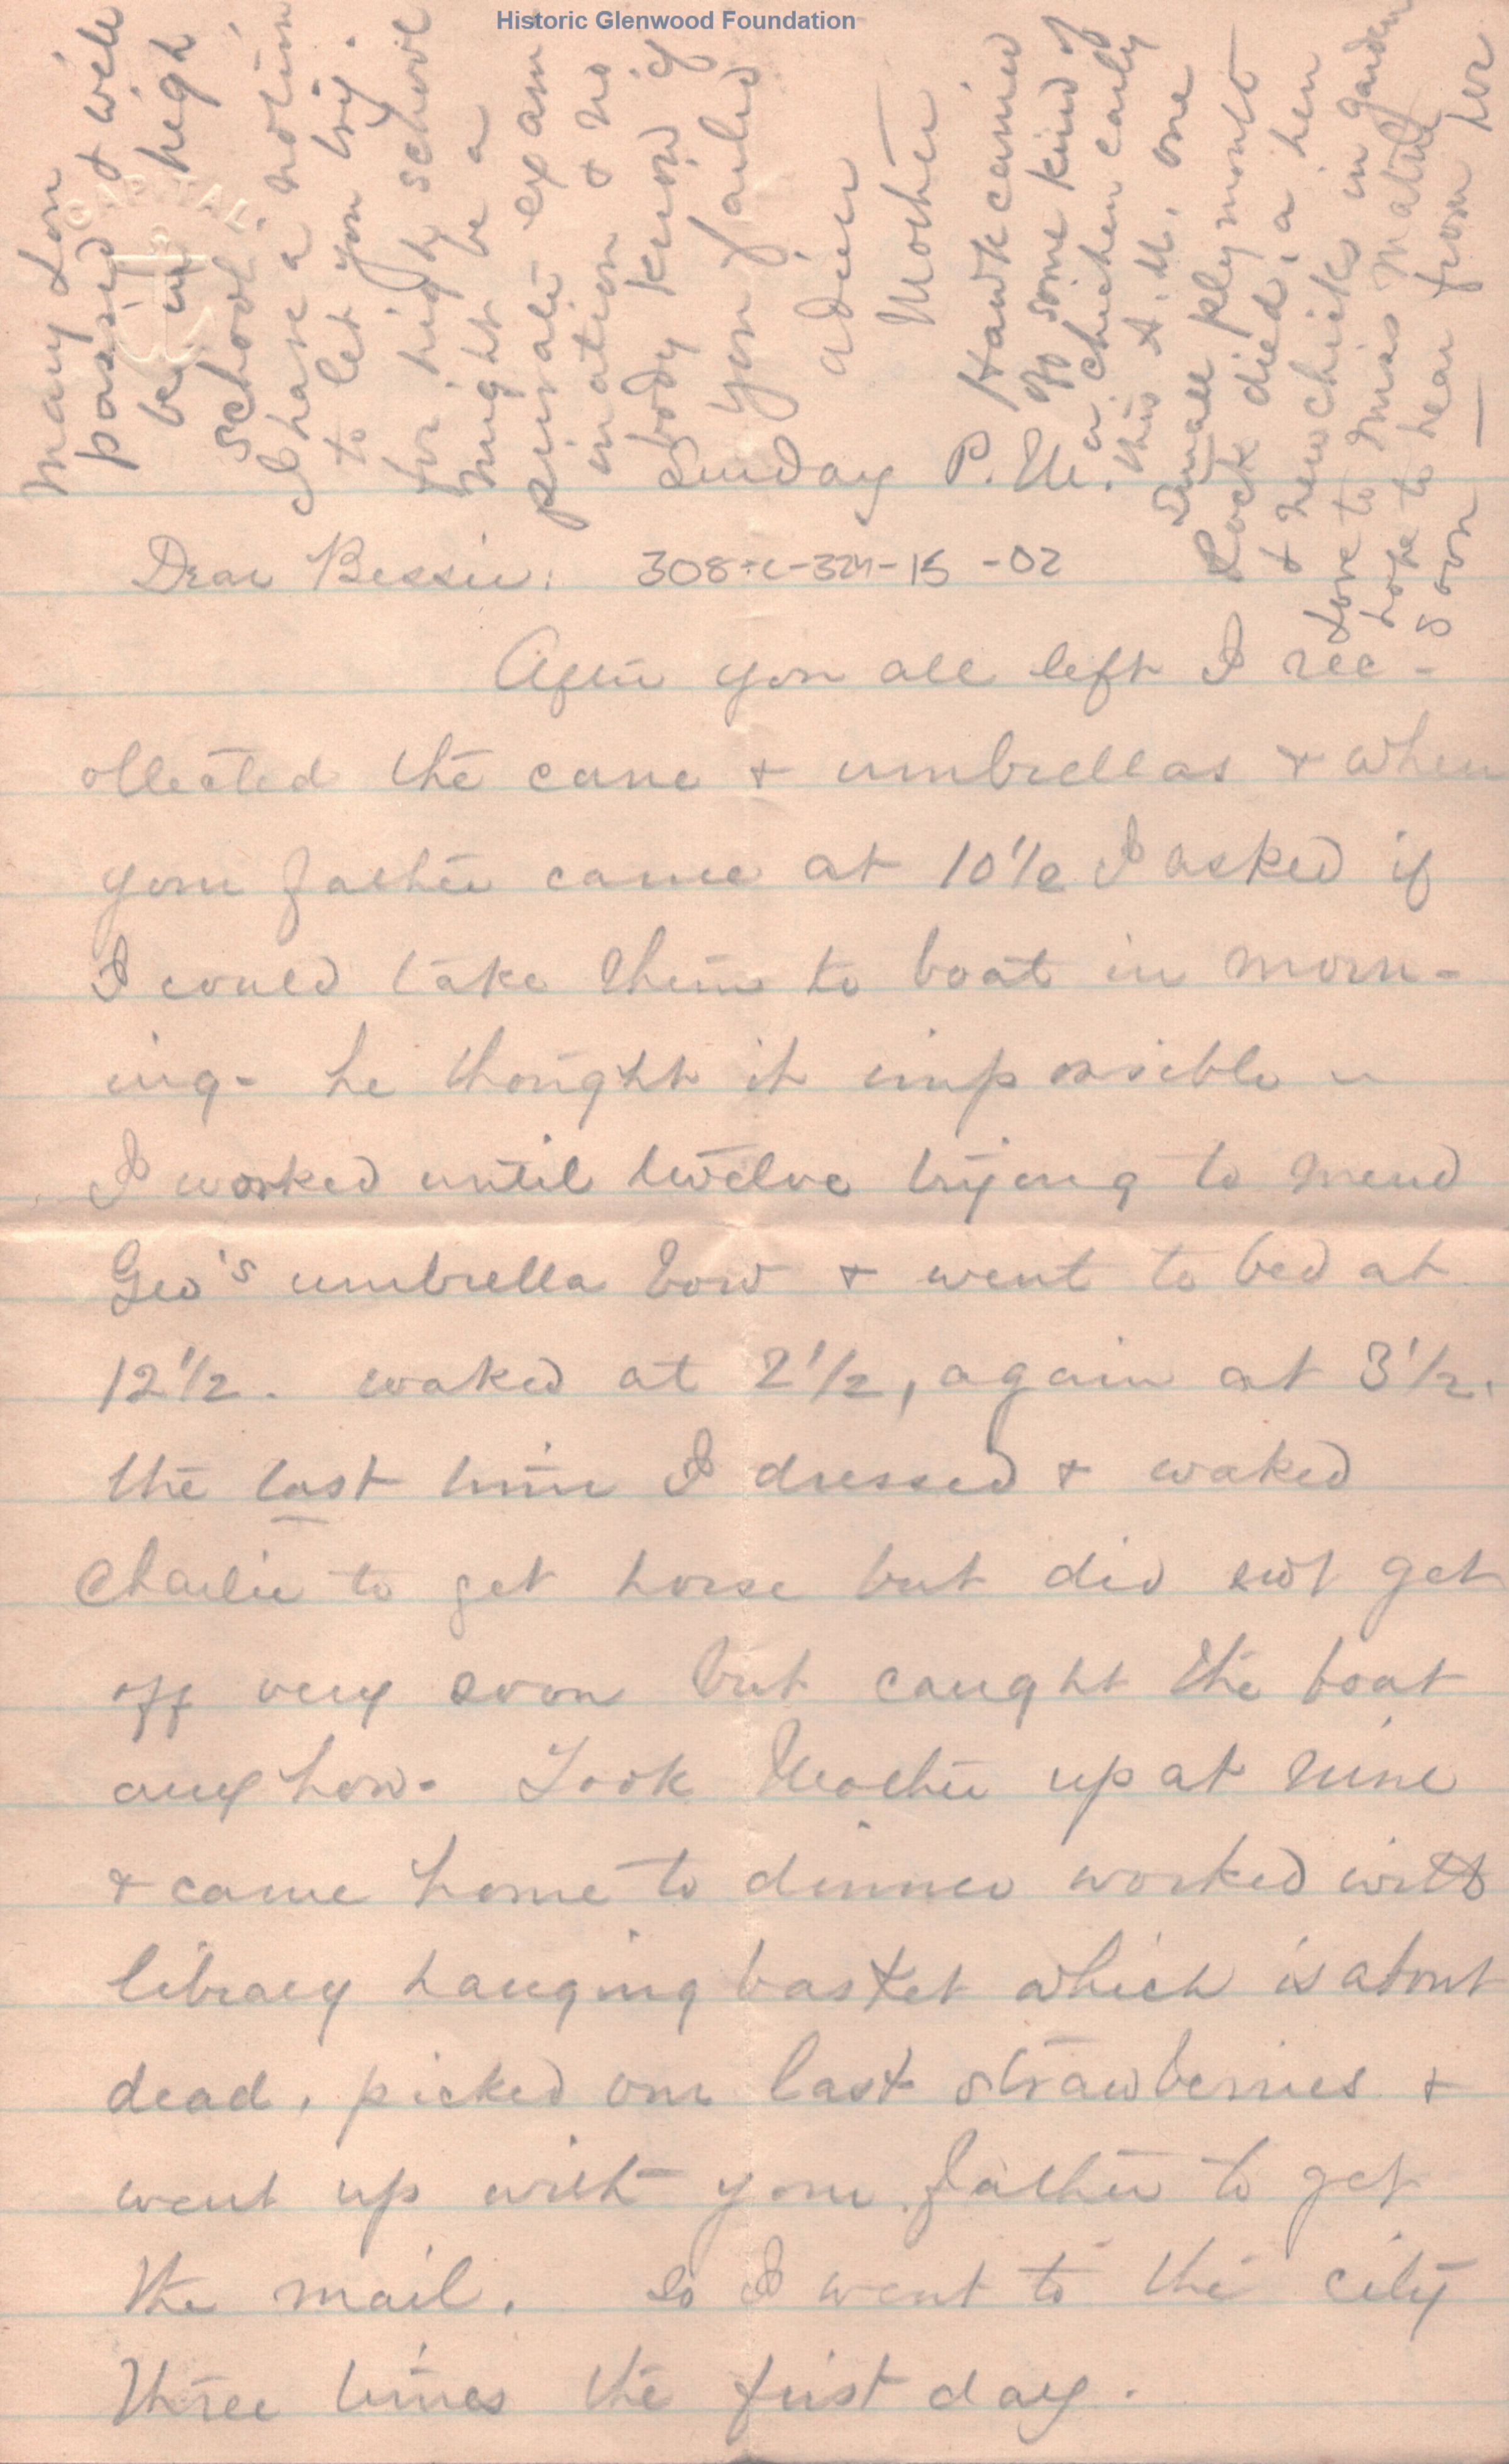 Historic Glenwood Foundation
Sunday P.M.
Dear Bessie: 308-c-324-15-02
After you all left I rec-
ollected the cane & umbrellas & when
your father came at 10 1/2 I asked if
I could take them to boat in morn-
ing- he thought it impossible -
I worked until twelve trying to mend
Geo's umbrella bow & went to bed at
12 1/2. waked at 2 1/2, again at 3 1/2.
the last time I dressed & waked
Charlie to get horse but did not get
off very soon but caught the boat
anyhow. Took Mother up at nine
& came home to dinner worked with
library hanging basket which is about
dead, picked our last strawberries &
went up with your father to get
the mail. So I went to the city
three times the first day.
Mary Lou
passed & will
be in high
school. -
I have a notion
to let you try.
for high school
might be a
private exam
ination & no
body know if
you failed
adieu
Mother
Hawk carried
off some kind of
a chicken early
this A.M. one
small plymouth
Rock died, a hen
& new chicks in garden
Love to Miss
hope to hear from her
soon —
CAPITAL